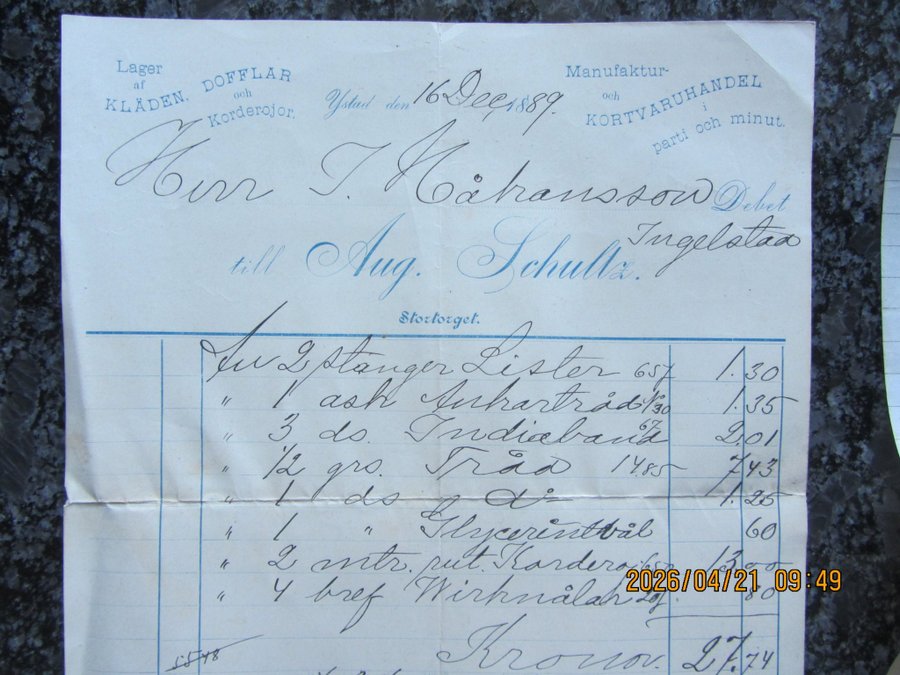 Lager
af
KLÄDEN. DOFFLAR
och
Korderojor.
Manufaktur-
och
KORTVARUHANDEL
i
parti och minut.
Ystad den 16 Dec, 1889.
Herr I. Håkansson Debet
Ingelstad
till Aug. Schultz.
Stortorget.
Av 2 stänger Lister 65f 1.30
" 1 ask Ankartråd 1.35
" 3 ds. Indiæband 67 2.01
" 1/2 grs. Tråd 14.85 7.43
" 1 ds do 1.25
" 1 " Glycerintvål 60
" 2 mtr. rut. 13.00
" 4 bref 20f. 80
2026/04/21 09:49
Kronor. 27.74